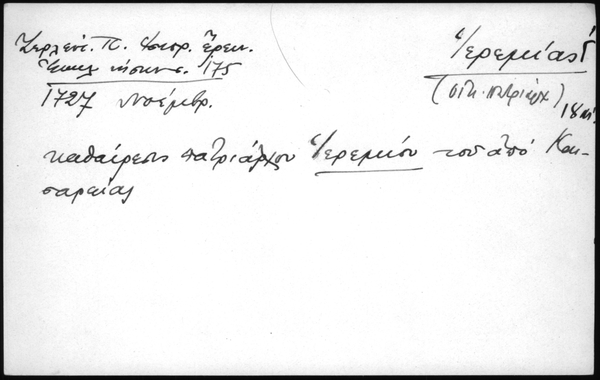 Ζερλέντ. Π. Ἱστορ. Ἔρευν.
Ἐκκλ νήσων σ. 175
1727 Νοέμβρ.
Ἱερεμίας Γ
(οἰκ. πατριάρχ)
18 αἰ.
καθαίρεσις πατριάρχου Ἱερεμίου τοῦ ἀπό Και-
σαρείας